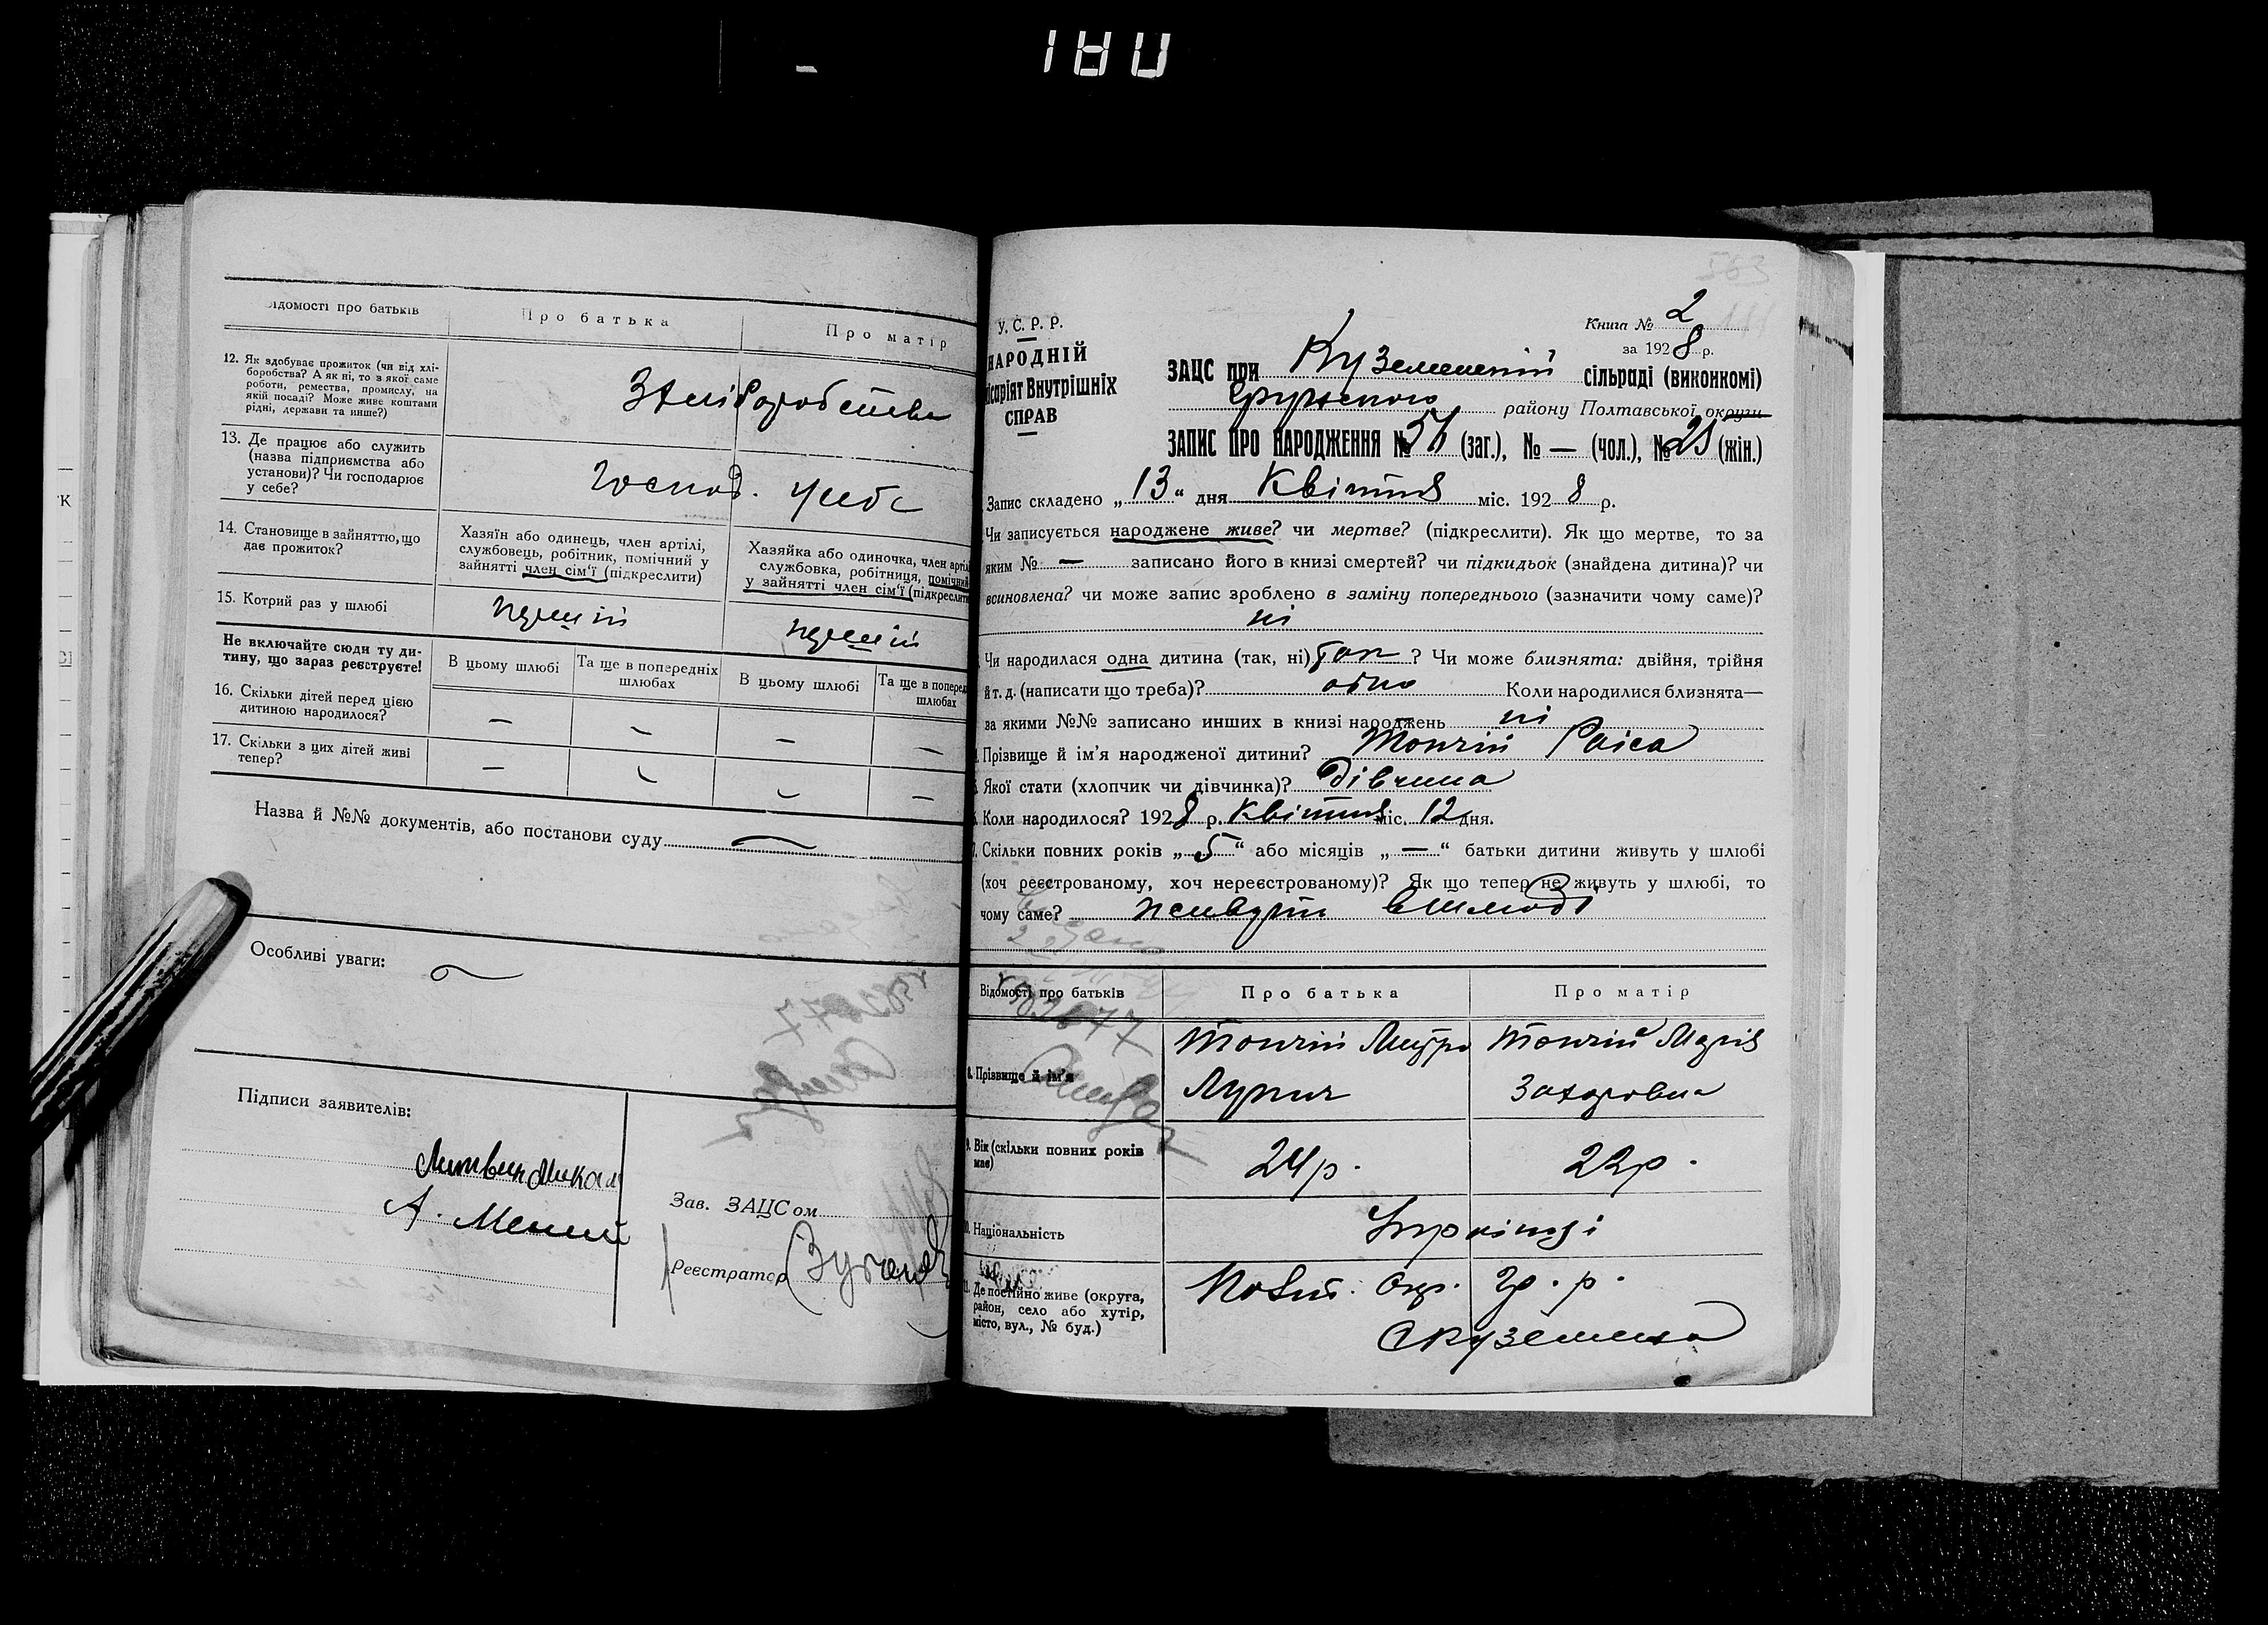 180
Відомості про батьків
Про батька
Про матір
12. Як здобуває прожиток (чи від хлі-
боробства? А як ні, то з якої саме
роботи, ремества, промислу, на
якій посаді? Може живе коштами
рідні, держави та инше?)
З хліборобства
13. Де працює або служить
(назва підприємства або
установи)? Чи господарює
у себе?
Господ. у себе
14. Становище в зайняттю, що
дає прожиток?
Хазяїн або одинець, член артілі,
службовець, робітник, помічний у
зайнятті член сім'ї (підкреслити)
Хазяйка або одиночка, член артіл
службовка, робітниця, помічний
у зайнятті член сім'ї (підкреслити
15. Котрий раз у шлюбі
перший
перший
Не включайте сюди ту ди-
тину, що зараз реєструєте!
В цьому шлюбі
Та ще в попередніх
шлюбах
В цьому шлюбі
Та ще в поперед
шлюбах
16. Скільки дітей перед цією
дитиною народилося?
— — — —
17. Скільки з цих дітей живі
тепер?
— — — —
Назва й №№ документів, або постанови суду —
Особливі уваги:
Підписи заявителів:
Литвин Микол
А.
Зав. ЗАЦСом
Реєстратор
У. С. Р. Р.
НАРОДНІЙ
ісаріят Внутрішніх
СПРАВ
Книга № 2
за 1928 р.
ЗАЦС при Куземенській сільраді (виконкомі)
Грунського району Полтавської округи
ЗАПИС ПРО НАРОДЖЕННЯ № 51 (заг.), № — (чол.), № 21 (жін.)
Запис складено „13" дня Квітня міс. 1928 р.
Чи записується народжене живе? чи мертве? (підкреслити). Як що мертве, то за
яким № — записано його в книзі смертей? чи підкидьок (знайдена дитина)? чи
всиновлена? чи може запис зроблено в заміну попереднього (зазначити чому саме)?
ні
Чи народилася одна дитина (так, ні) так ? Чи може близнята: двійня, трійня
й т. д. (написати що треба)? одно Коли народилися близнята—
за якими №№ записано инших в книзі народжень ні
Прізвище й ім'я народженої дитини? Тончій Раіса
Якої стати (хлопчик чи дівчинка)? дівчина
Коли народилося? 1928 р. Квітня міс. 12 дня.
Скільки повних років „5" або місяців „—" батьки дитини живуть у шлюбі
(хоч реєстрованому, хоч нереєстрованому)? Як що тепер не живуть у шлюбі, то
чому саме?
Відомості про батьків
Про батька
Про матір
8. Прізвище й ім'я
Тончій Митро
Тончій Марія
Захаровна
9. Вік (скільки повних років
має)
24 р.
22 р.
10. Національність
Українці
11. Де постійно живе (округа,
район, село або хутір,
місто, вул., № буд.)
Полт. Окр. Гр. р.
с Куземени